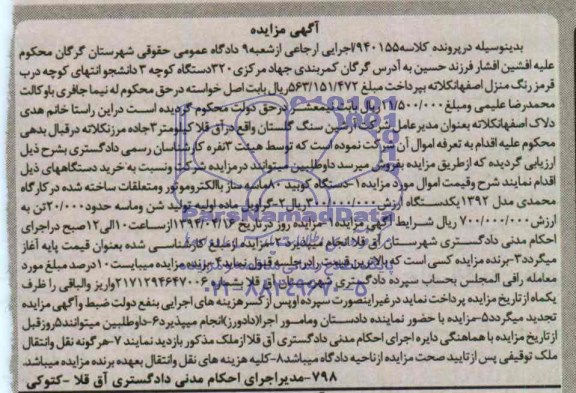 آگهی مزایده
بدینوسیله درپرونده کلاسه۹۴۰۱۵۵/اجرایی ارجاعی ازشعبه۹ دادگاه عمومی حقوقی شهرستان گرگان محکوم
علیه افشین افشار فرزند حسین به آدرس گرگان کمربندی جهاد مرکزی۳۲۰دستگاه کوچه ۳ دانشجو انتهای کوچه درب
قرمز رنگ منزل اصفهانکلاته بپرداخت مبلغ ۵۶۳/۱۵۱/۴۷۲ریال بابت اصل خواسته درحق محکوم له نیما جافری باوکالت
محمدرضا علیمی ومبلغ۲۱/۵۰۰/۰۰۰ریال بابت نیم عشر درحق دولت محکوم گردیده است دراین راستا خانم هدی
دلاک اصفهانکلاته بعنوان مدیرعامل شرکت آرشین سنگ گلستان واقع درآق قلا کیلومتر۳جاده مرزنکلاته درقبال بدهی
محکوم علیه اقدام به تعرفه اموال آن شرکت نموده است که توسط هیئت ۳نفره کارشناسان رسمی دادگستری بشرح ذیل
ارزیابی گردیده که ازطریق مزایده بفروش میرسد داوطلبین میتوانند درمزایده شرکت ونسبت به خرید دستگاههای ذیل
اقدام نمایند شرح وقیمت اموال مورد مزایده۱-دستگاه کوبید ۸۰ماسه ساز باالکتروموتور ومتعلقات ساخته شده درکارگاه
محمدی مدل ۱۳۹۲ یکدستگاه ارزش۳۰۰/۰۰۰/۰۰۰ریال ۲-گراویل ماده اولیه تولید شن وماسه حدود۲۰/۰۰۰تن به
ارزش۷۰۰/۰۰۰/۰۰۰ ریال شرایط آگهی مزایده۱-مزایده روز درتاریخ ۱۳۹۴/۰۲/۱۶ ازساعت۱۰الی۱۲صبح دراجرای
احکام مدنی دادگستری شهرستان آق قلا انجام میپذیرد۲-مزایده ازمبلغ کارشناسی شده بعنوان قیمت پایه آغاز
میگردد۳-برنده مزایده کسی است که بالاترین قیمت رادرجلسه قبول نماید۴-برنده مزایده میبایست۱۰درصد مبلغ مورد
معامله رافی المجلس بحساب سپرده دادگستری شهرستان آق قلا بشماره ۲۱۷۱۲۹۴۶۴۷۰۰۶واریز والباقی را ظرف
یکماه ازتاریخ مزایده پرداخت نماید درغیراینصورت سپرده اوپس ازکسرهزینه های اجرایی بنفع دولت ضبط وآگهی مزایده
تجدید میگردد۵-مزایده با حضور نماینده دادستان ومامور اجرا(دادورز)انجام میپذیرد۶-داوطلبین میتوانند۵روزقبل
ازتاریخ مزایده با هماهنگی دایره اجرای احکام مدنی دادگستری آق قلا ازملک مذکور بازدید نمایند ۷-هرگونه نقل وانتقال
ملک توقیفی پس ازتایید صحت مزایده ازناحیه دادگاه میباشد۸-کلیه هزینه های نقل وانتقال بعهده برنده مزایده میباشد.
۷۹۸-مدیراجرای احکام مدنی دادگستری آق قلا -کتوکی
ParsNamadData